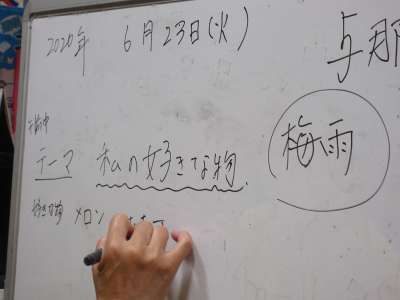 2020年 6月23日(火)
与那
梅雨
テーマ 私の好きな物
メロン